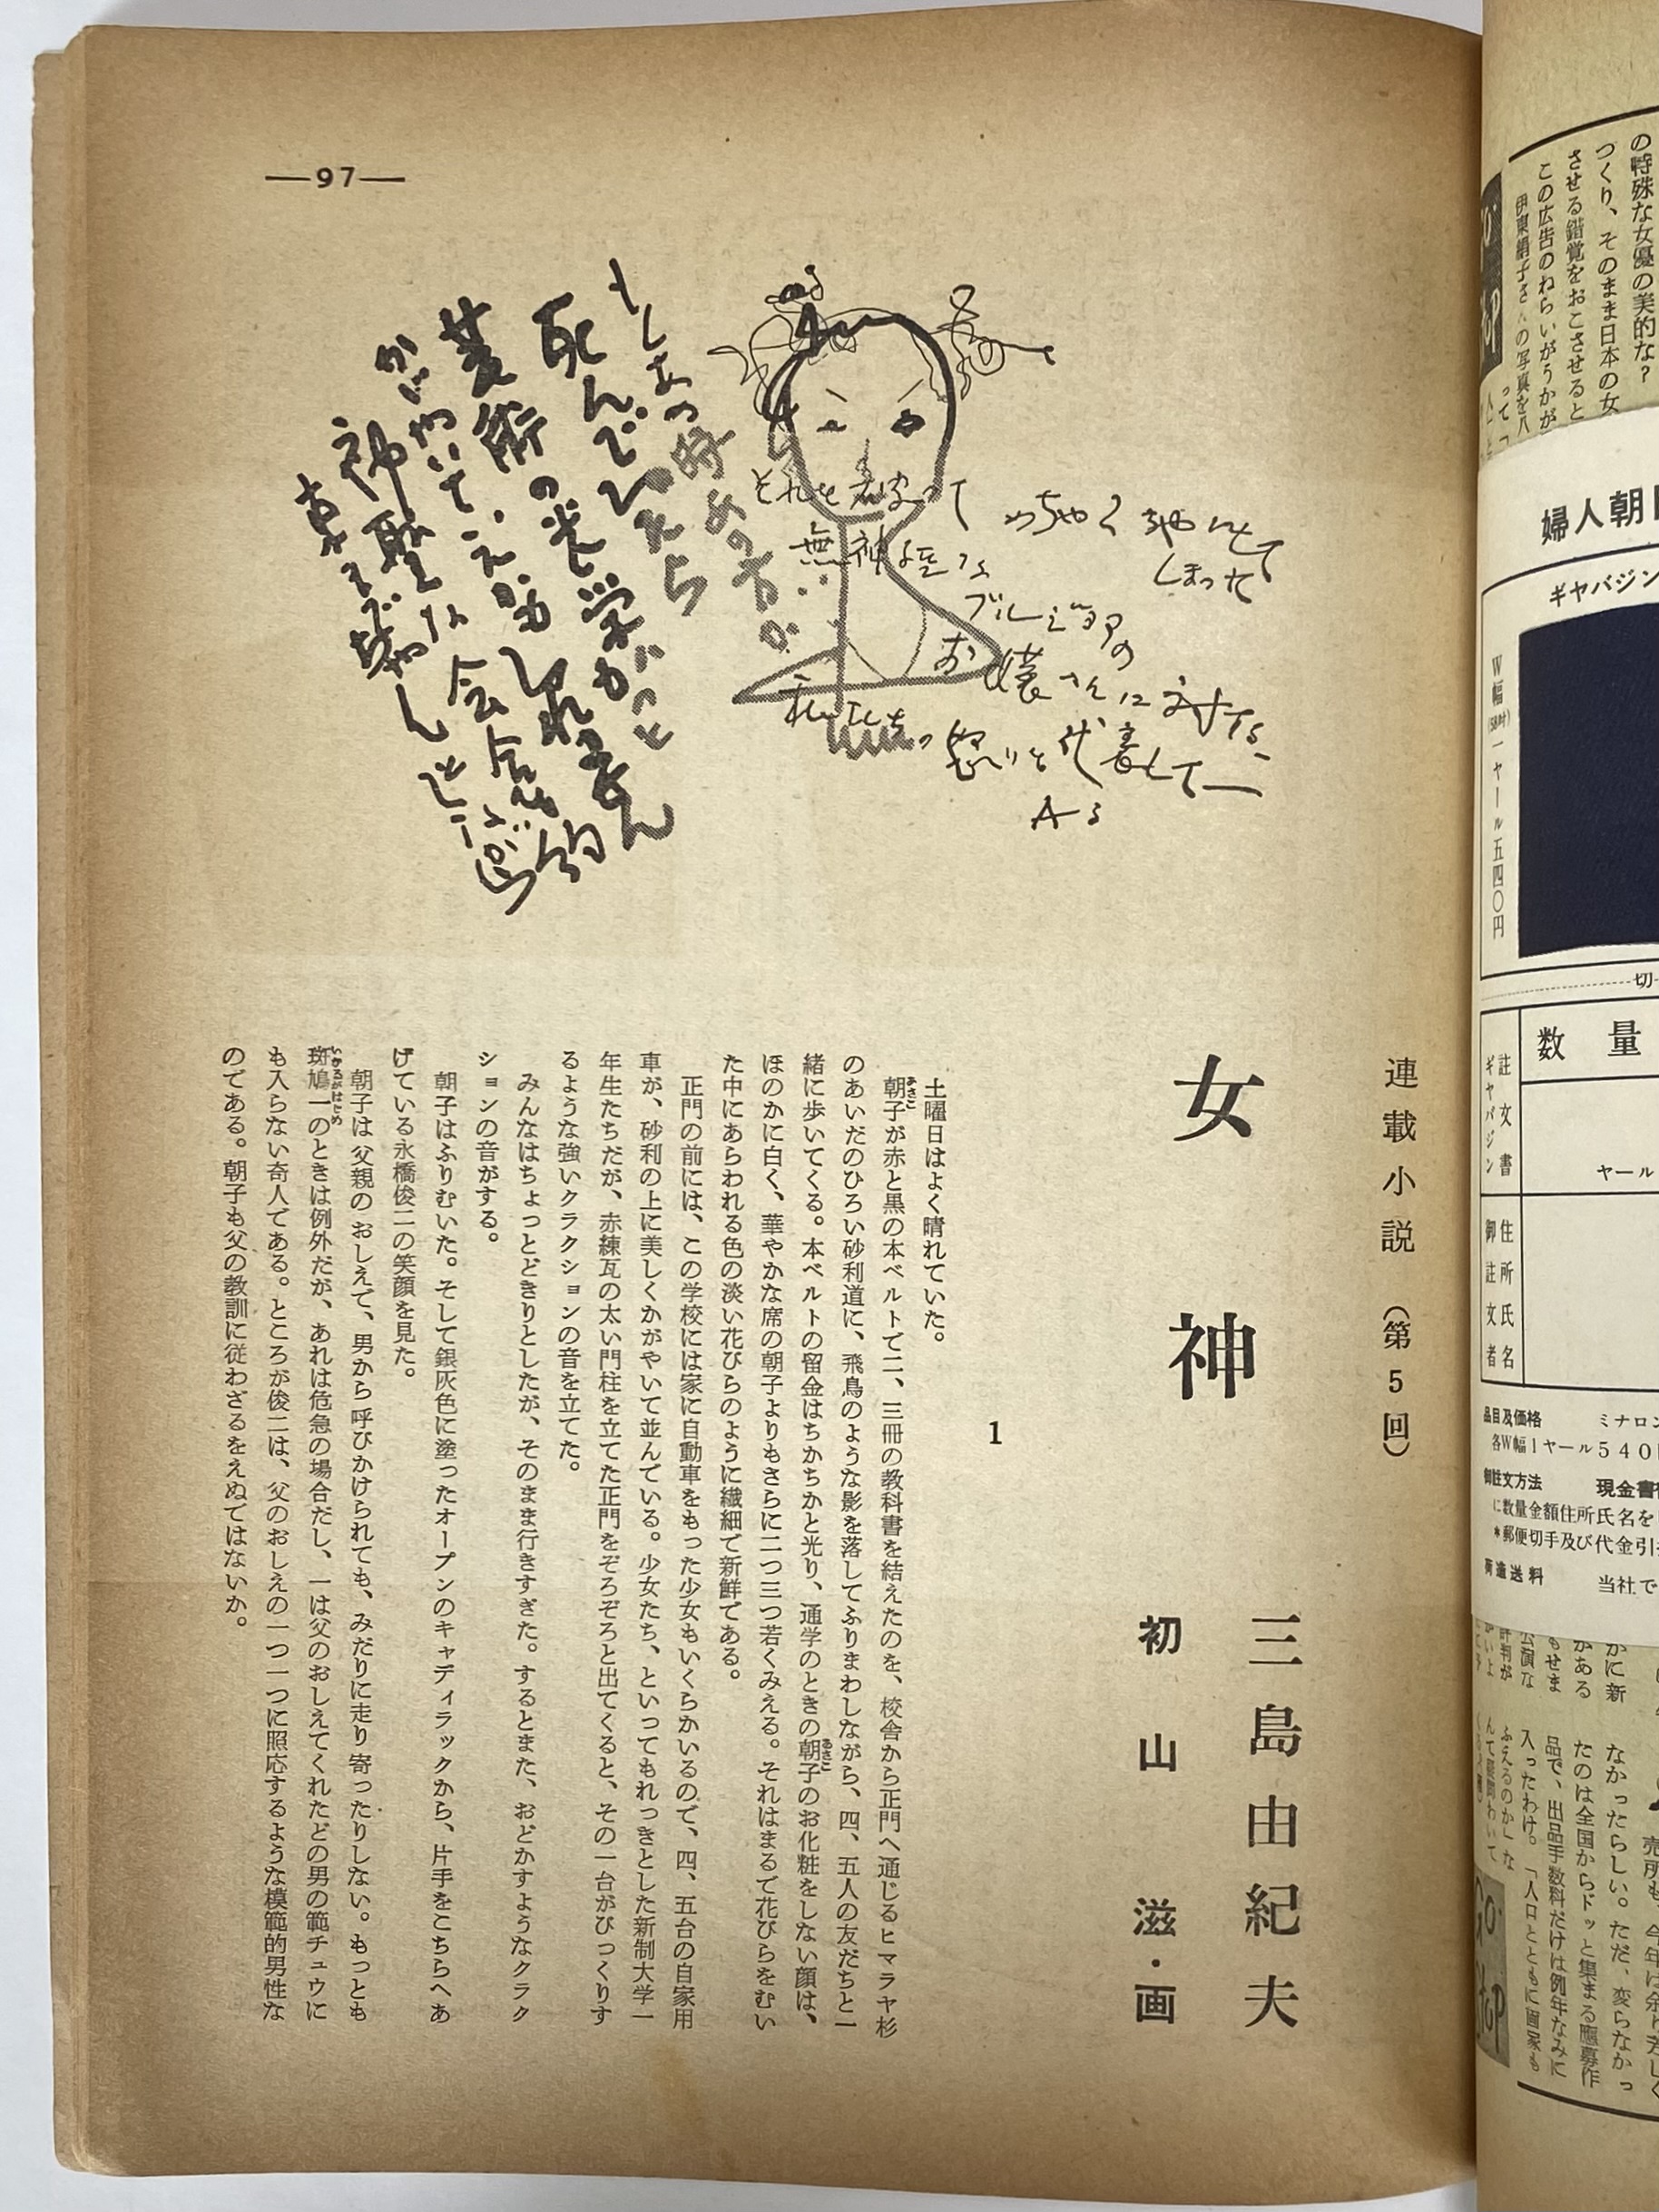 連載小説 (第5回)
女神
三島由紀夫
初山滋・画
1
土曜日はよく晴れていた。
朝子が赤と黒の本ベルトで二、三冊の教科書を結えたのを、校舎から正門へ通じるヒマラヤ杉
のあいだのひろい砂利道に、飛鳥のような影を落してふりまわしながら、四、五人の友だちと一
緒に歩いてくる。本ベルトの留金はちかちかと光り、通学のときの朝子のお化粧をしない顔は、
ほのかに白く、華やかな席の朝子よりもさらに二つ三つ若くみえる。それはまるで花びらをむい
た中にあらわれる色の淡い花びらのように繊細で新鮮である。
正門の前には、この学校には家に自動車をもった少女もいくらかいるので、四、五台の自家用
車が、砂利の上に美しくかがやいて並んでいる。少女たち、といってもれっきとした新制大学一
年生たちだが、赤練瓦の太い門柱を立てた正門をぞろぞろと出てくると、その一台がびっくりす
るような強いクラクションの音を立てた。
みんなはちょっとどきりとしたが、そのまま行きすぎた。するとまた、おどかすようなクラク
ションの音がする。
朝子はふりむいた。そして銀灰色に塗ったオープンのキャディラックから、片手をこちらへあ
げている永橋俊二の笑顔を見た。
朝子は父親のおしえで、男から呼びかけられても、みだりに走り寄ったりしない。もっとも
斑鳩一のときは例外だが、あれは危急の場合だし、一は父のおしえてくれたどの男の範チュウに
も入らない奇人である。ところが俊二は、父のおしえの一つ一つに照応するような模範的男性な
のである。朝子も父の教訓に従わざるをえぬではないか。
あさこ
あさこ
いかるがはじめ
もしあの時あの方が
死んでいたら
光学がもっと
芸術の
かがやいていたかもしれません
神聖な会合
それを
めちゃくちゃにして
しまった
無神経な
ブルジョアの
お嬢さんに対する
私たちの怒りを代表して
Aる
—97—
の特殊な女優の美的な?
つくり、そのまま日本の女
させる錯覚をおこさせると
この広告のねらいがうかが
伊東絹子さんの写真を八
婦人朝日
ギヤバジン
W幅
一ヤール五四〇円
切
数量
註文書
ギヤバジン
ヤール
御註文者
住所氏名
品目及価格
ミナロン
各W幅1ヤール540
御註文方法
現金書
に数量金額住所氏名を
*郵便切手及び代金引
荷造送料
当社で
なかったらしい。ただ、変らなかっ
たのは全国からドッと集まる応募作
品で、出品手数料だけは例年なみに
入ったわけ。「人口とともに画家も
ふえるのか」な